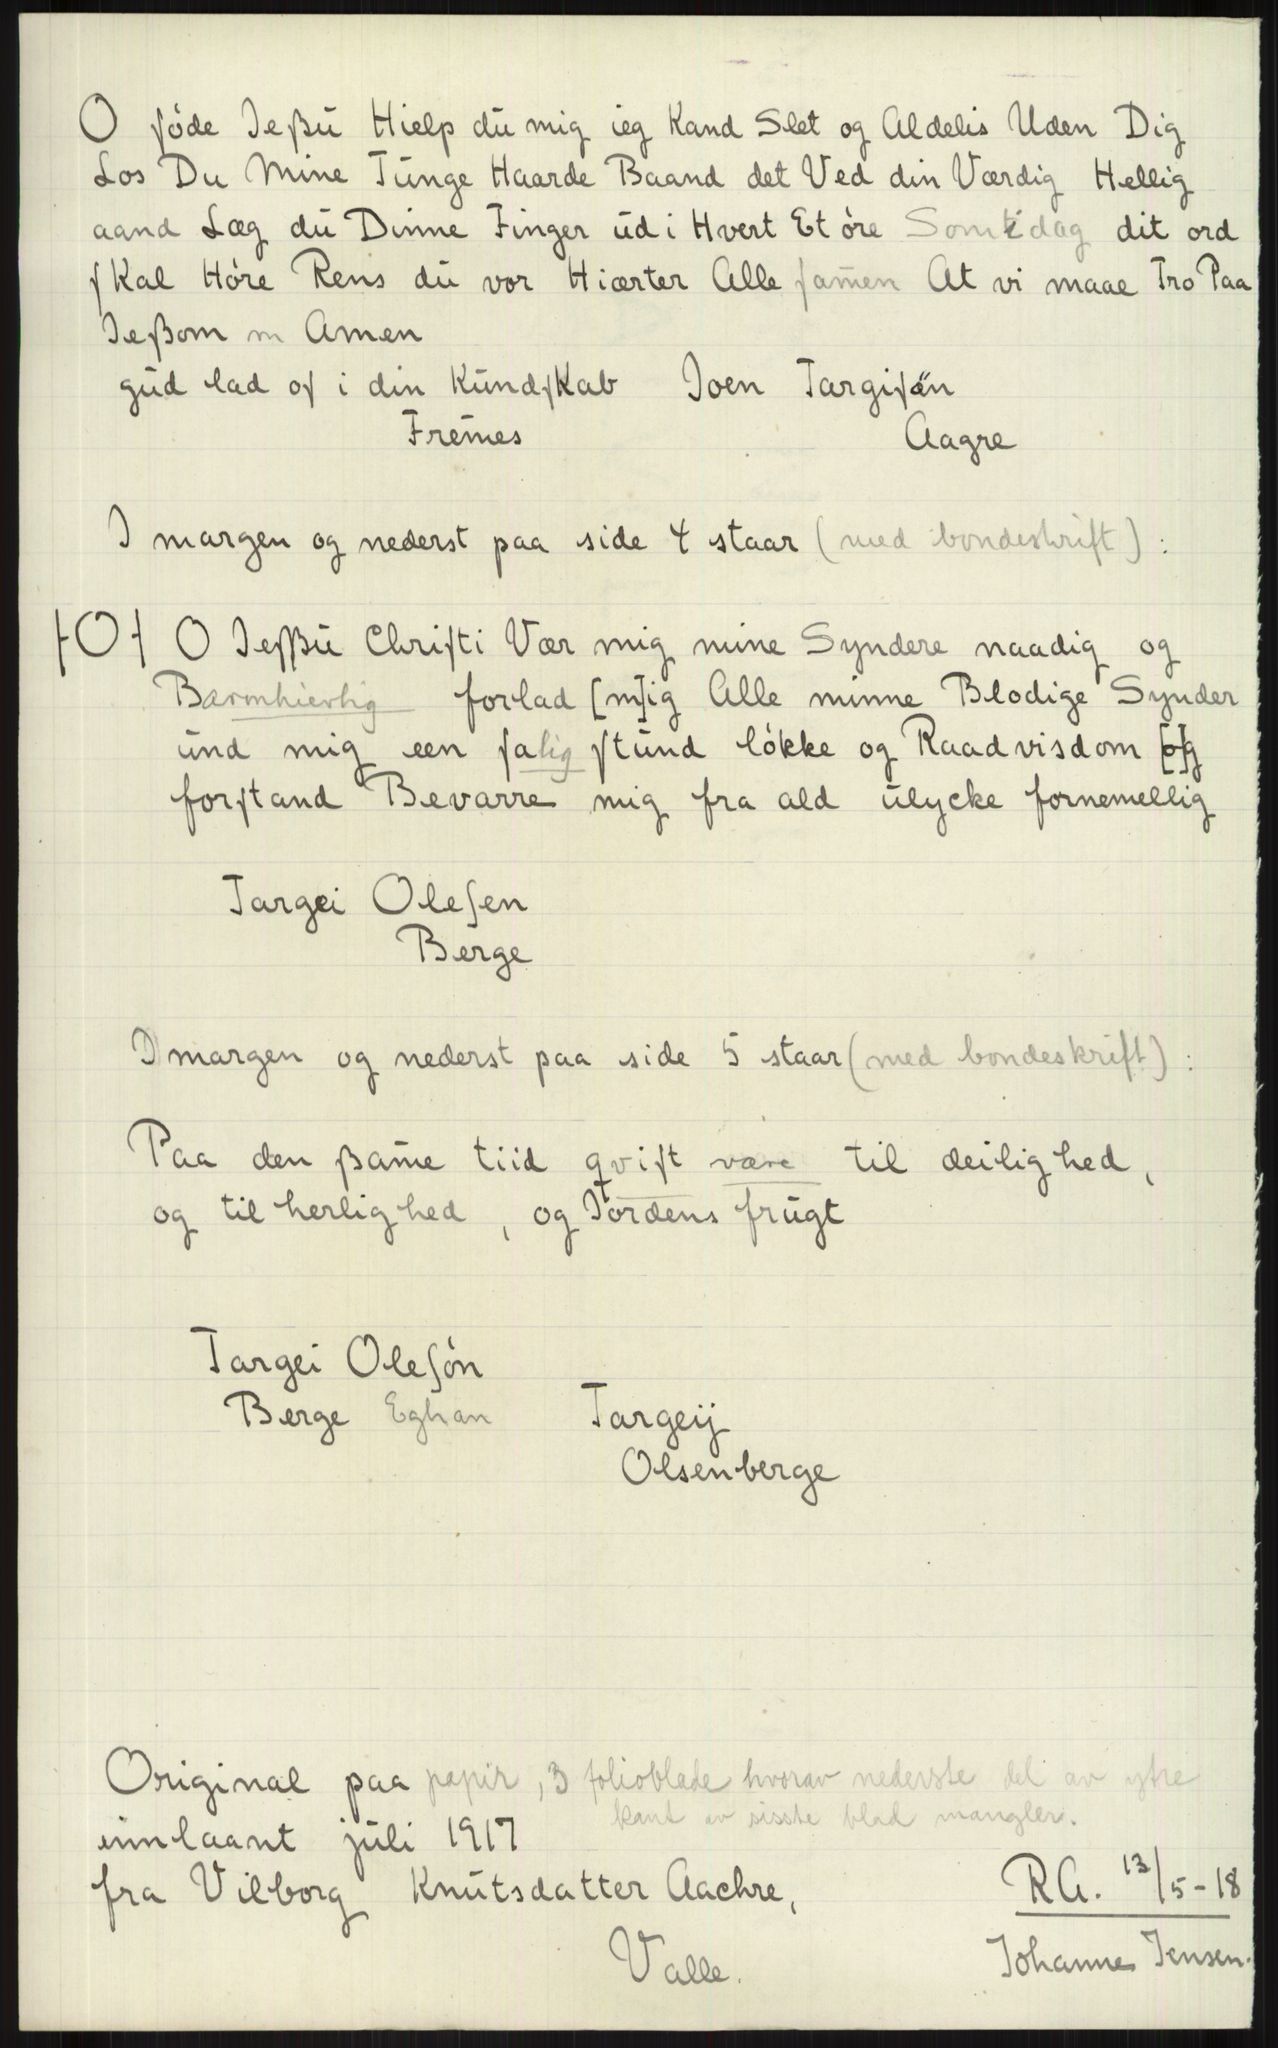 O ſöde Ieẞu Hielp du mig ieg Kand Slet og Aldelis Uden Dig
Los Du Mine Tunge Haarde Baand det Ved din Værdig Hellig
aand Læg du Dinne Finger ud i Hvert Et öre Som i dag dit ord
ſKal Höre Rens du vor Hiærter Alle ſam̄en At vi maae Tro Paa
Ieẞom m Amen
gud lad oſ i din KundſKab Joen Targiſön
Frem̄es Aagre
I margen og nederst paa side 4 staar (med bondeskrift) :
ƗOɈ O Ieſẞu Chriſti Vær mig mine Syndere naadig og
Barmhiertig forlad [m]ig Alle minne Blodige Synder
und mig een ſalig ſtund lökke og Raad visdom [o]g
forſtand Bevarre mig fra ald ulycke fornemellig
Targei Oleſen
Berge
I margen og nederst paa side 5 staar (med bondeskrift) :
Paa den ẞam̄e tiid qviſt være til deilighed,
og til herlighed, og Jordens frugt
Targei Oleſön
Berge Eghan Targeij
Olsenberge
Original paa papir, 3 folioblade hvorav nederste del av ytre
kant av sisste blad mangler.
innlaant juli 1917
fra Vilborg Knutsdatter Aachre,
Valle.
RA. 13/5-18
Johanne Jensen.